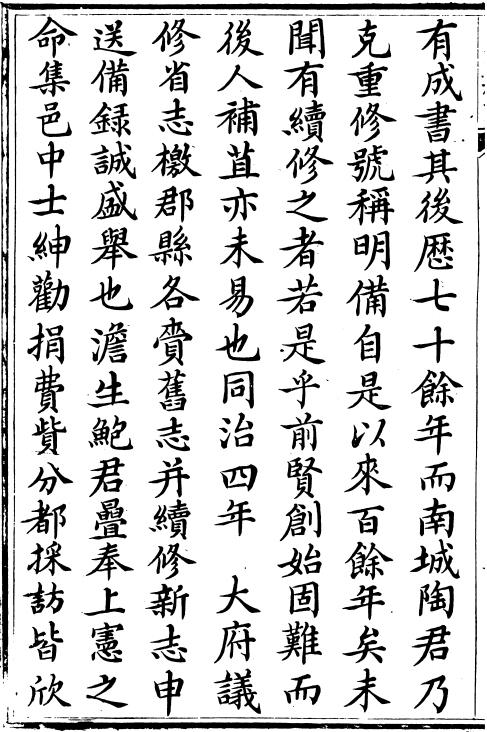 有成書其後歴七十餘年而南城陶君乃
克重修號稱明備自是以來百餘年矣未
聞有續修之者若是乎前賢創始固難而
後人補苴亦未易也同治四年　大府議
修省志檄郡縣各賫舊志并續修新志申
送備録誠盛舉也澹生鮑君疊奉上憲之
命集邑中士紳勸捐費貲分都採訪皆欣